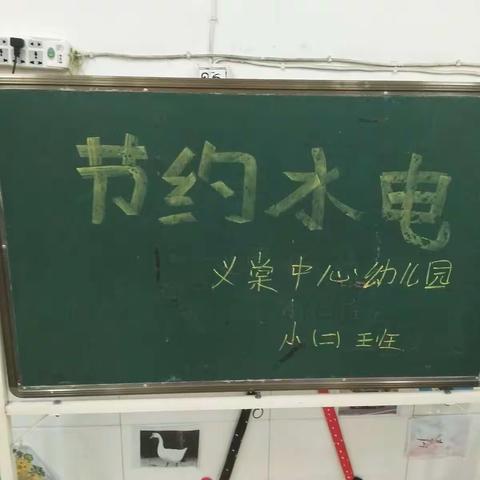 节约水电
义棠中心幼儿园
小(二)班